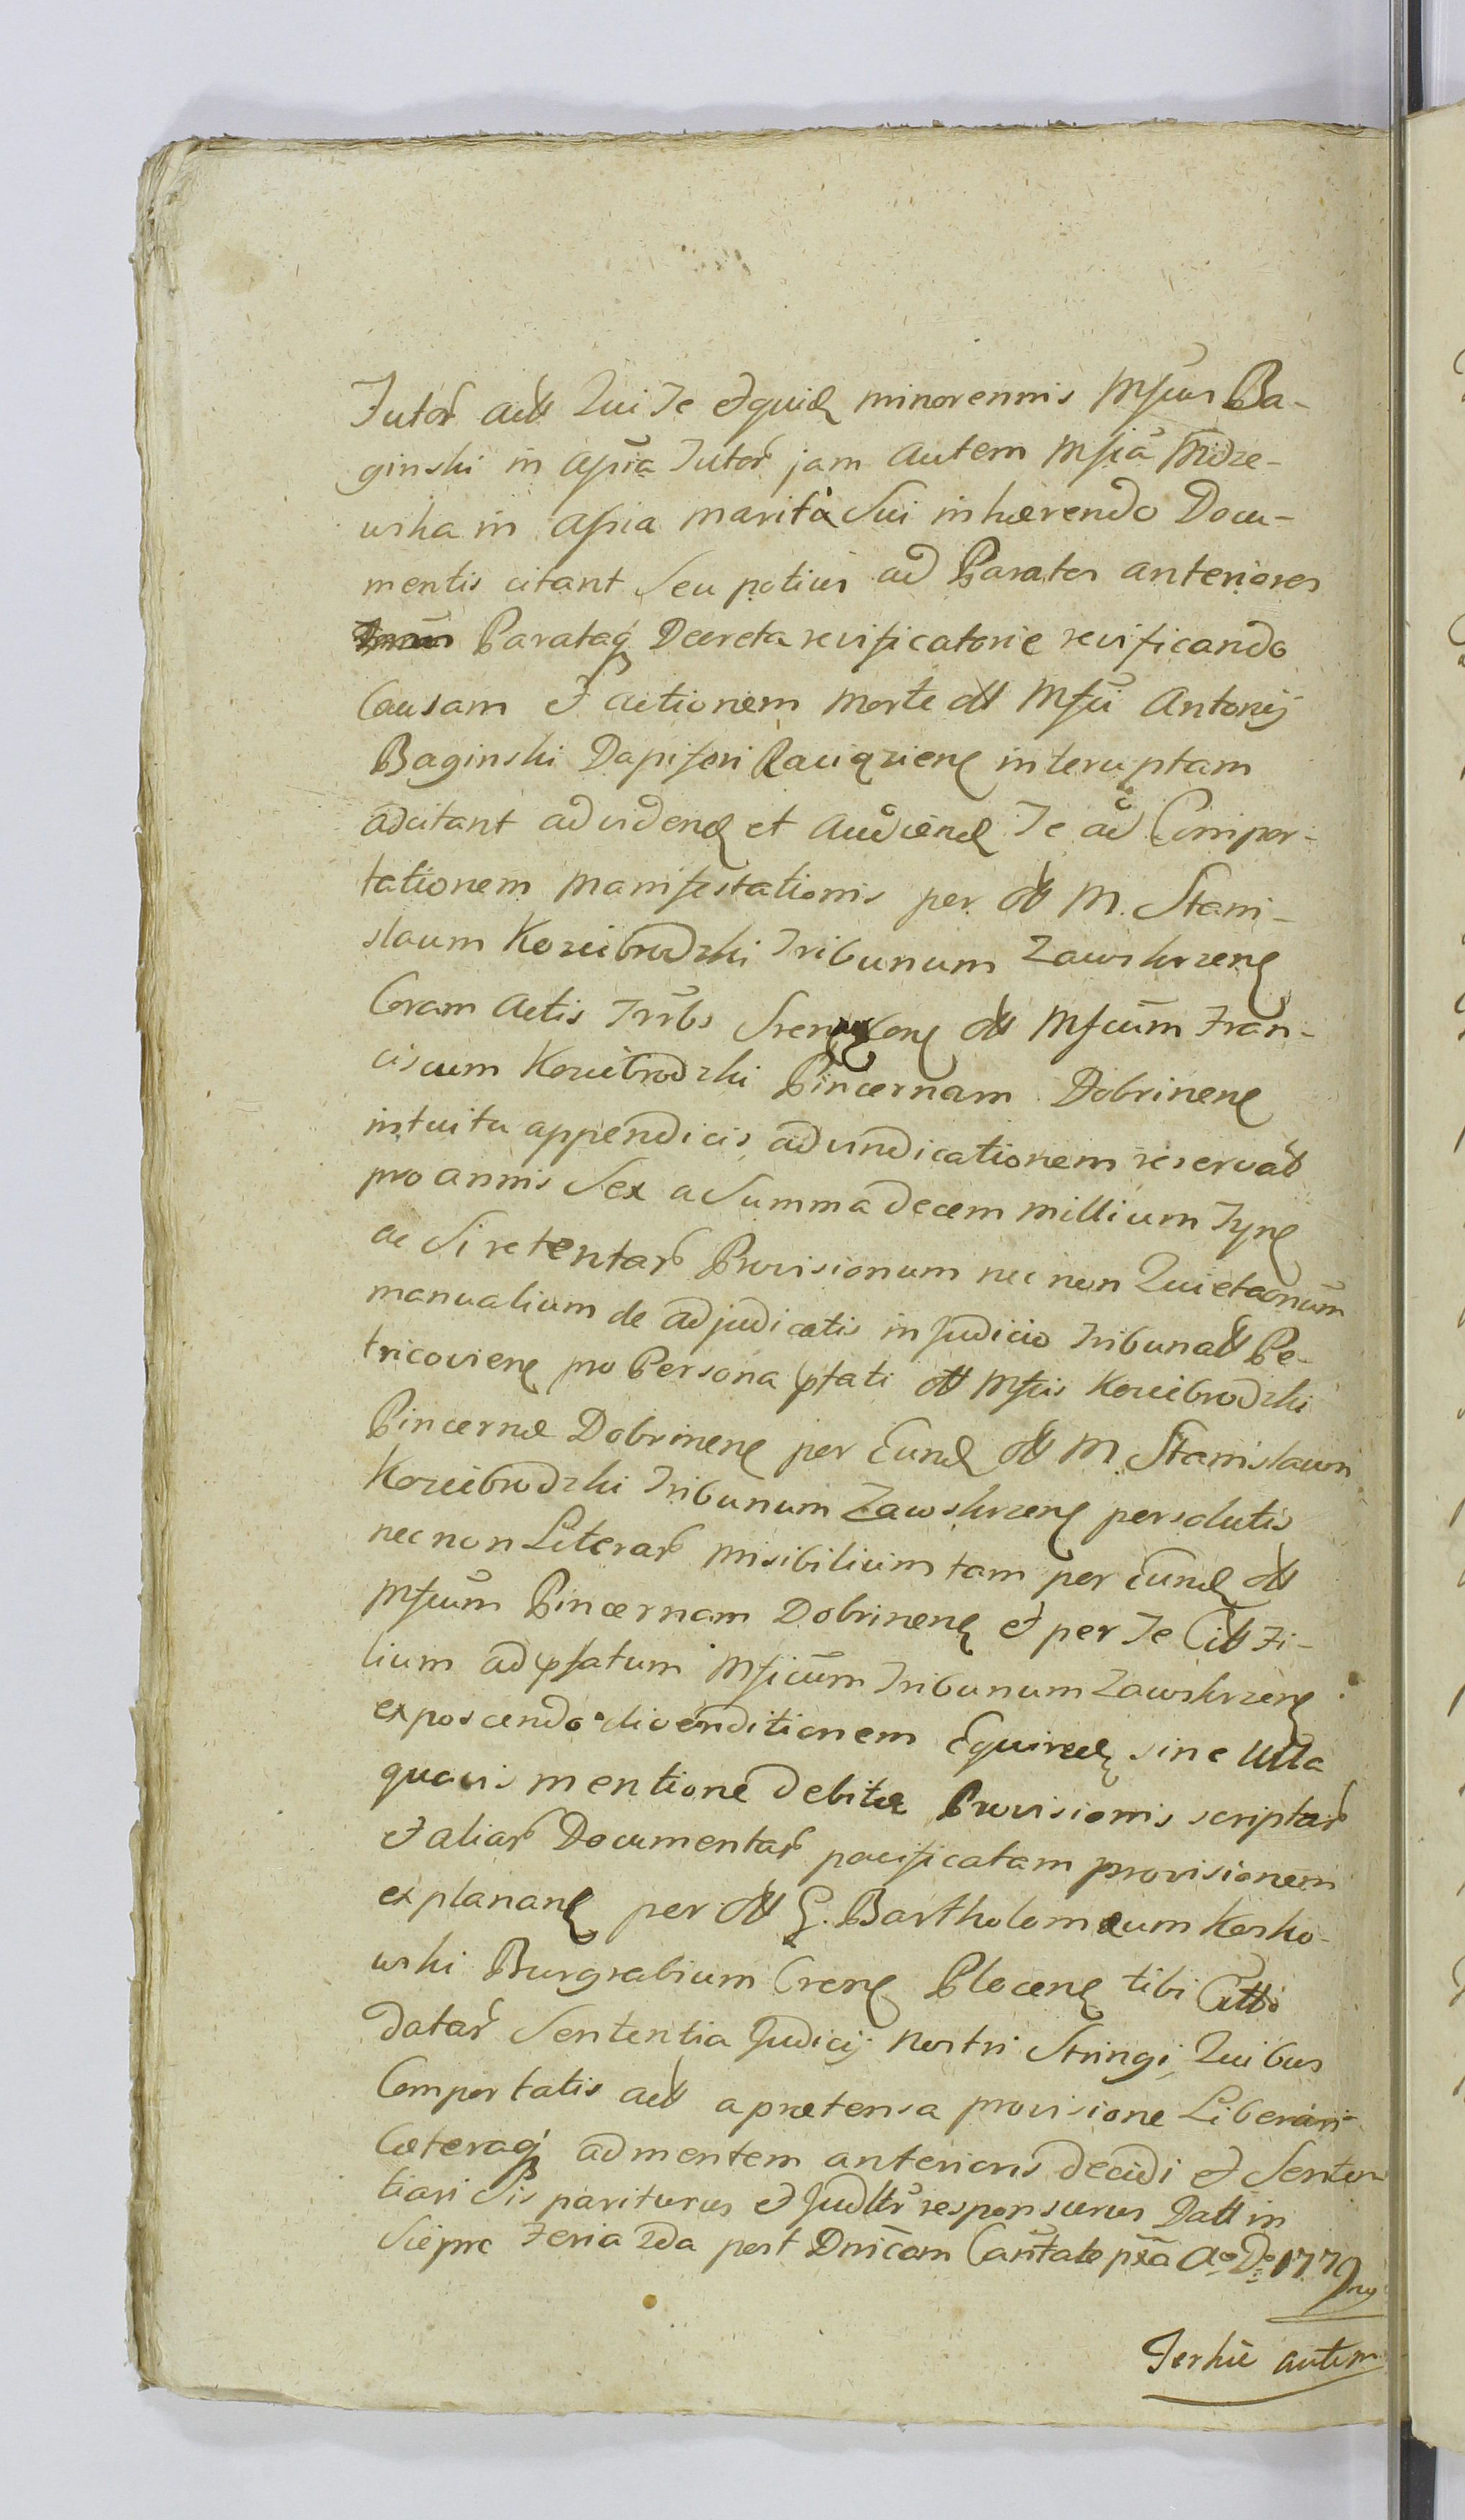 Tutor act Qui Te equid minorennis Mfcus Ba-
ginski in assia Tutor jam autem Mfia Mdze-
wska in assia mariti Sui inhærendo Docu-
mentis citant Seu potius ad Paratas anteriores
Parataq Decreta revificatorie revificando
Causam et actionem morte olt Mfci Antonij
Baginski Dapiferi Raciqzienę interuptam
adcitant ad videnđ et audiendđ Te ad Compor-
tationem manifestationis per olt M. Stani-
slaum Koziebrodzki Tribunum Zawskrzenę
Coram Actis Trrbs olt Mfcum Fran-
ciscum Koziebrodzki Pincernam Dobrinenę
intuitu appendicis ad vindicationem reservat
pro annis Sex a Summa decem millium Tynę
ac Si retentar Provisionum nec non Quietaonum
manualium de adjudicatis in Judicio Tribunalt Pe-
tricovienę pro Persona pfati olt Mfcis Koziebrodzki
Pincernæ Dobrinenę per Eund olt M. Stanislaum
Koziebrodzki Tribunum Zawskrzenę persolutis
nec non Literar misibilium tam per Eund olt
Mfcum Pincernam Dobrinenę et per Te Citt Fi-
lium ad pfatum Mficum Tribunum Zawskrzenę
exposcendo divenditionem sine Ulla
quavis mentione debitæ Provisionis scriptar
et aliar Documentar pacificatam provisionem
explananę per olt G. Bartholomæum Kosko-
wski Burgrabium Crenę Plocenę tibi Citto
datar Sententia Judicij Nostri Stringi, Quibus
Comportatis act a prætensa provisione Liberari
Cæteraq ad mentem anterioris decidi et Senten-
tiari Sis pariturus et Judltr responsurus Datt in
Sierpc Feria 2da post Dnicam Cantate pxa Ao Do 1779
Ferhie autem